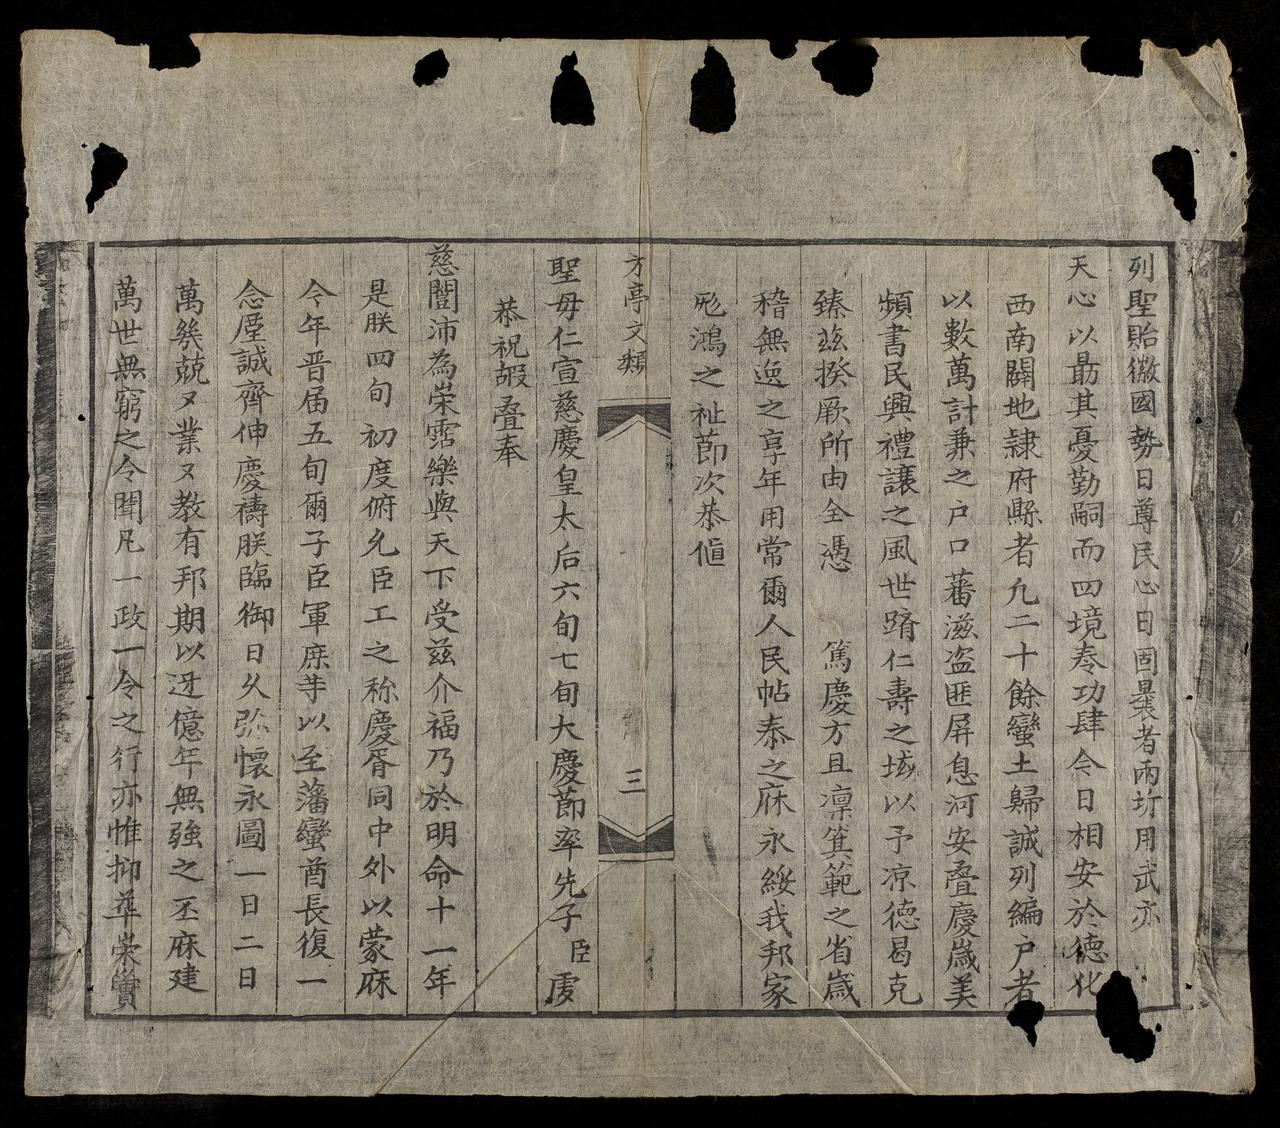 列聖貽徽國勢日尊民心日固曩者兩圻用武亦
天心以最其憂勤嗣而四境奏功肆今日相安於德化
西南闢地隷府縣者九二十餘蠻土歸誠列編户者
以數萬計兼之户口蕃滋盗匪屏息河安疊慶歲美
頻書民興禮讓之風世躋仁壽之域以予凉德曷克
臻兹揆厥所由全憑 篤慶方且凛箕範之省歲
稽無逸之享年用常爾人民帖泰之庥永綏我邦家
厖鴻之祉節次恭值
方亭文類 三
聖母仁宣慈慶皇太后六旬七旬大慶節率先子臣虔
恭祝嘏疊奉
慈闓沛為榮霑樂與天下受兹介福乃於明命十一年
是朕四旬初度俯允臣工之称慶胥同中外以蒙庥
今年晋届五旬爾子臣軍庶䓁以至藩蠻酋長復一
念壥誠齊伸慶禱朕臨御日久弥懷永圖一日二日
萬幾兢又業又教有邦期以迓億年無強之丕庥建
萬世無窮之令聞凡一政一令之行亦惟抑華崇實